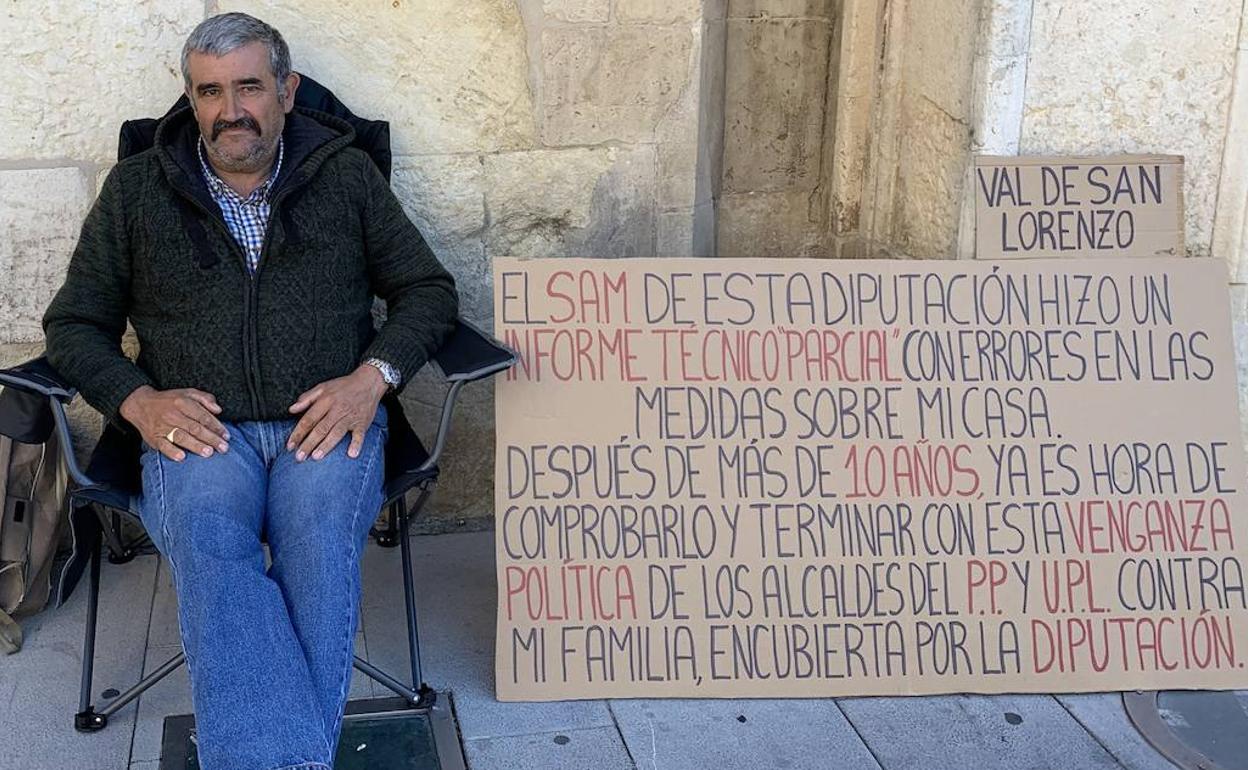 VAL DE SAN
LORENZO
EL S.A.M. DE ESTA DIPUTACIÓN HIZO UN
INFORME TÉCNICO "PARCIAL" CON ERRORES EN LAS
MEDIDAS SOBRE MI CASA.
DESPUÉS DE MÁS DE 10 AÑOS, YA ES HORA DE
COMPROBARLO Y TERMINAR CON ESTA VENGANZA
POLÍTICA DE LOS ALCALDES DEL P.P. Y U.P.L. CONTRA
MI FAMILIA, ENCUBIERTA POR LA DIPUTACIÓN.